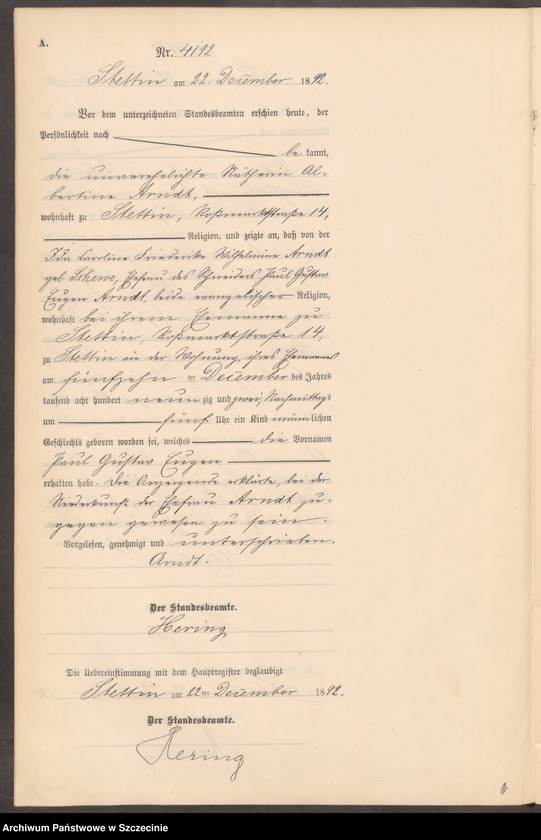 A.
Nr. 4192
Stettin am 22. Dezember 1892.
Vor dem unterzeichneten Standesbeamten erschien heute, der
Persönlichkeit nach
be kannt,
die unverehelichte Nätherin Al-
bertine Arndt,
wohnhaft zu Stettin, Roßmarktstraße 14,
Religion, und zeigte an, daß von der
Ida Caroline Friederike Wilhelmine Arndt
geb. Schewe, Ehefrau des Schneiders Paul Gustav
Eugen Arndt, beide evangelischer Religion,
wohnhaft bei ihrem Ehemanne zu
Stettin, Roßmarktstraße 14,
zu Stettin in der Wohnung ihres Ehemannes
am fünfzehn ten Dezember des Jahres
tausend acht hundert neun zig und zwei, Nachmittags
um fünf Uhr ein Kind männlichen
Geschlechts geboren worden sei, welches die Vornamen
Paul Gustav Eugen
erhalten habe. Die Anzeigende erklärte, bei der
Niederkunft der Ehefrau Arndt zu-
gegen gewesen zu sein.
Vorgelesen, genehmigt und unterschrieben.
Arndt.
Der Standesbeamte.
Hering
Die Uebereinstimmung mit dem Hauptregister beglaubigt
Stettin am 22ten Dezember 1892.
Der Standesbeamte.
Hering
Archiwum Państwowe w Szczecinie